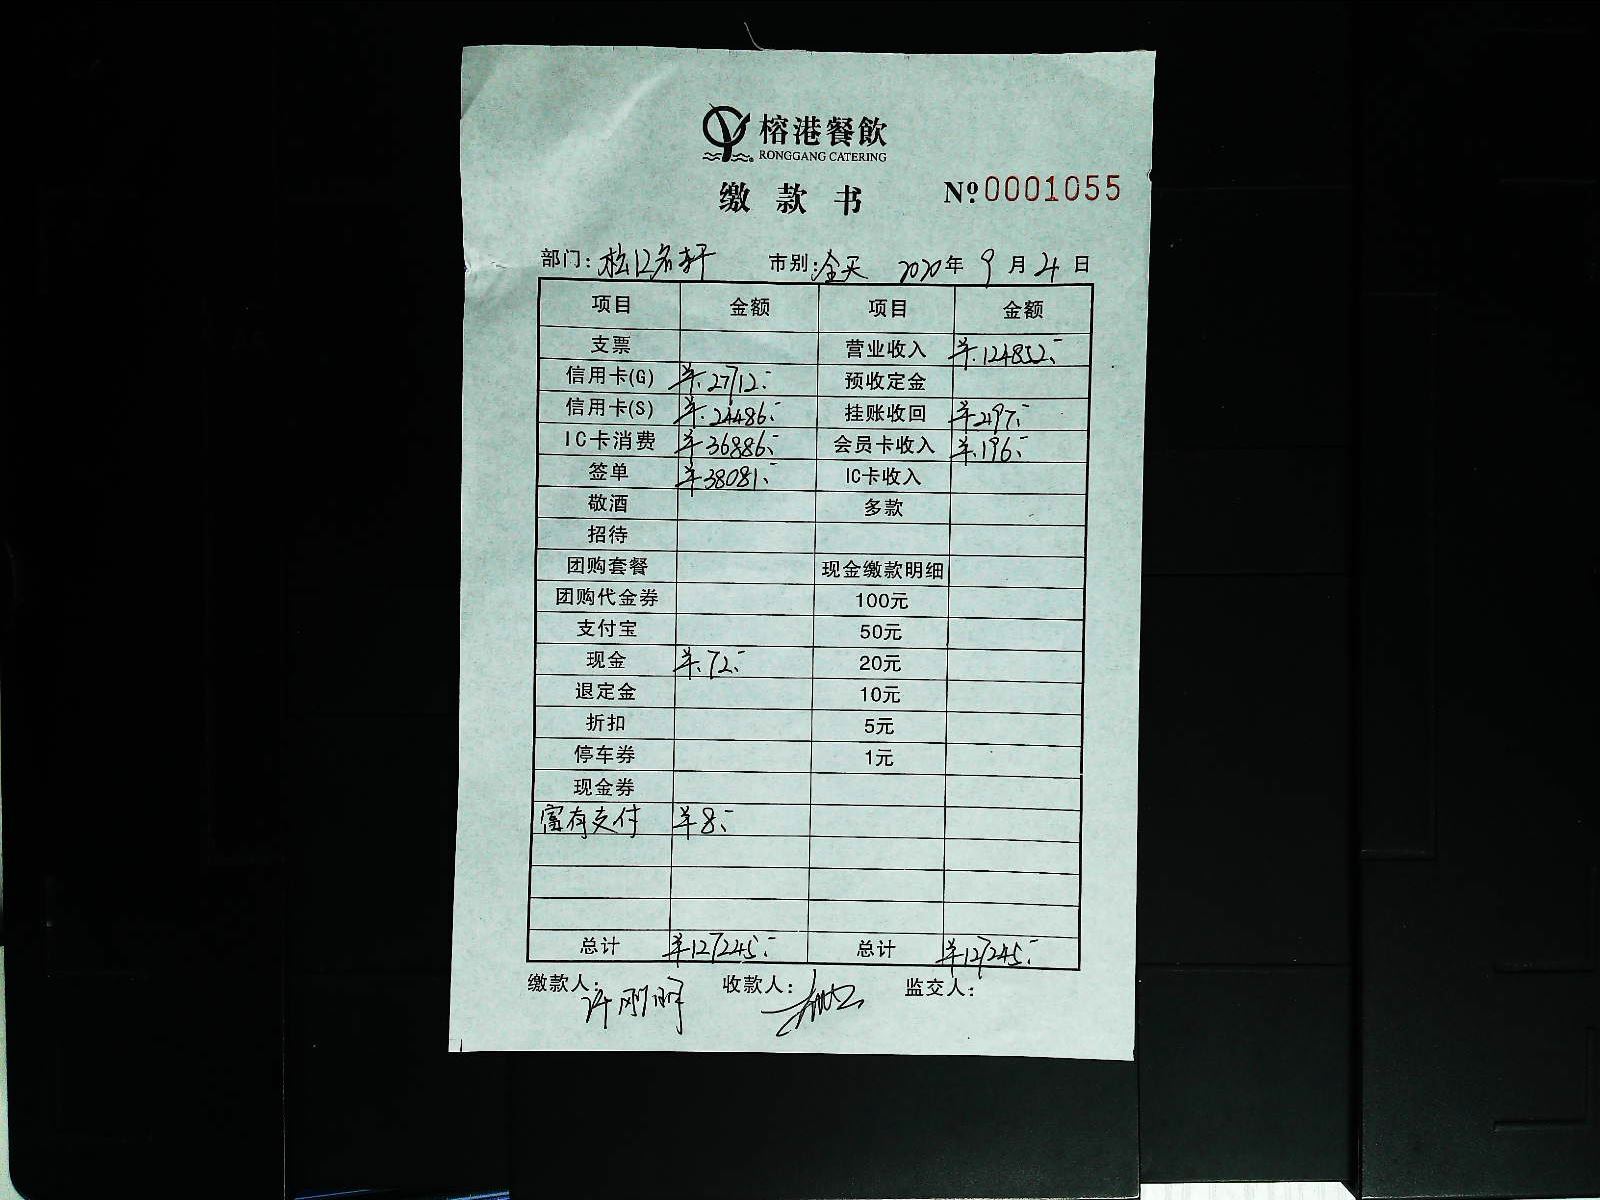 榕港餐飲
RONGGANG CATERING
缴款书 №0001055
部门: 松江名轩 市别: 全天 2020年 9月 21日
项目 金额 项目 金额
支票 营业收入 ¥.124852.-
信用卡(G) ¥.27712.- 预收定金
信用卡(S) ¥.24486.- 挂账收回 ¥2197.-
IC卡消费 ¥36886.- 会员卡收入 ¥.196.-
签单 ¥38081.- IC卡收入
敬酒 多款
招待
团购套餐 现金缴款明细
团购代金券 100元
支付宝 50元
现金 ¥.72.- 20元
退定金 10元
折扣 5元
停车券 1元
现金券
富有支付 ¥8.-
总计 ¥127245.- 总计 ¥127245.-
缴款人: 收款人: 监交人: